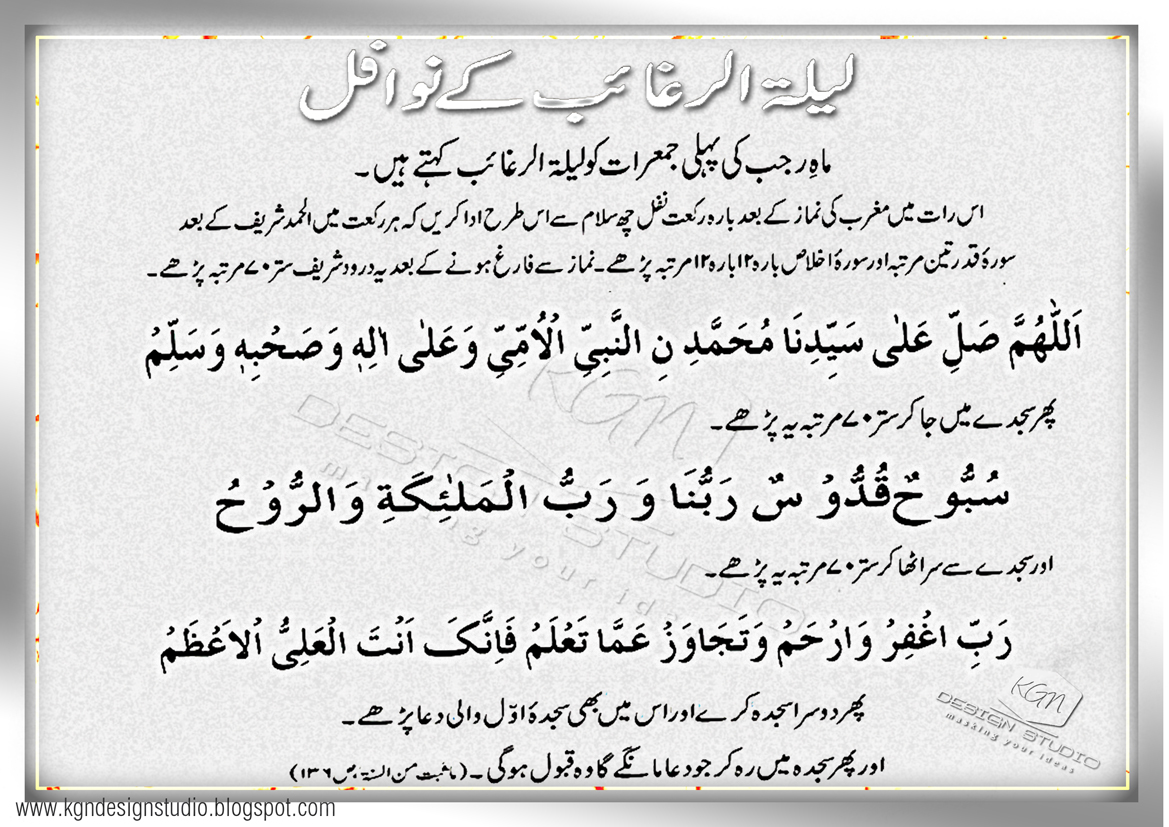 لیلۃ الرغائب کے نوافل
ماہِ رجب کی پہلی جمعرات کو لیلۃ الرغائب کہتے ہیں۔
اس رات میں مغرب کی نماز کے بعد بارہ رکعت نفل چھ سلام سے اس طرح ادا کریں کہ ہر رکعت میں الحمد شریف کے بعد
سورۂ قدر تین مرتبہ اور سورۂ اخلاص بارہ ۱۲ بارہ ۱۲ مرتبہ پڑھے۔ نماز سے فارغ ہونے کے بعد یہ درود شریف ستر ۷۰ مرتبہ پڑھے۔
اَللّٰھُمَّ صَلِّ عَلٰی سَیِّدِنَا مُحَمَّدِ نِ النَّبِیِّ الْاُمِّیِّ وَعَلٰی اٰلِہٖ وَصَحْبِہٖ وَسَلِّمْ
پھر سجدے میں جا کر ستر ۷۰ مرتبہ یہ پڑھے۔
سُبُّوْحٌ قُدُّوْسٌ رَبُّنَا وَ رَبُّ الْمَلٰئِکَۃِ وَالرُّوْحُ
اور سجدے سے سر اٹھا کر ستر ۷۰ مرتبہ یہ پڑھے۔
رَبِّ اغْفِرْ وَارْحَمْ وَتَجَاوَزْ عَمَّا تَعْلَمُ فَاِنَّکَ اَنْتَ الْعَلِیُّ الْاَعْظَمُ
پھر دوسرا سجدہ کرے اور اس میں بھی سجدۂ اوّل والی دعا پڑھے۔
اور پھر سجدہ میں رہ کر جو دعا مانگے گا وہ قبول ہوگی۔ (ماثبت من السنۃ، ص ۱۳۶)
KGN
DESIGN STUDIO
masking your ideas
www.kgndesignstudio.blogspot.com